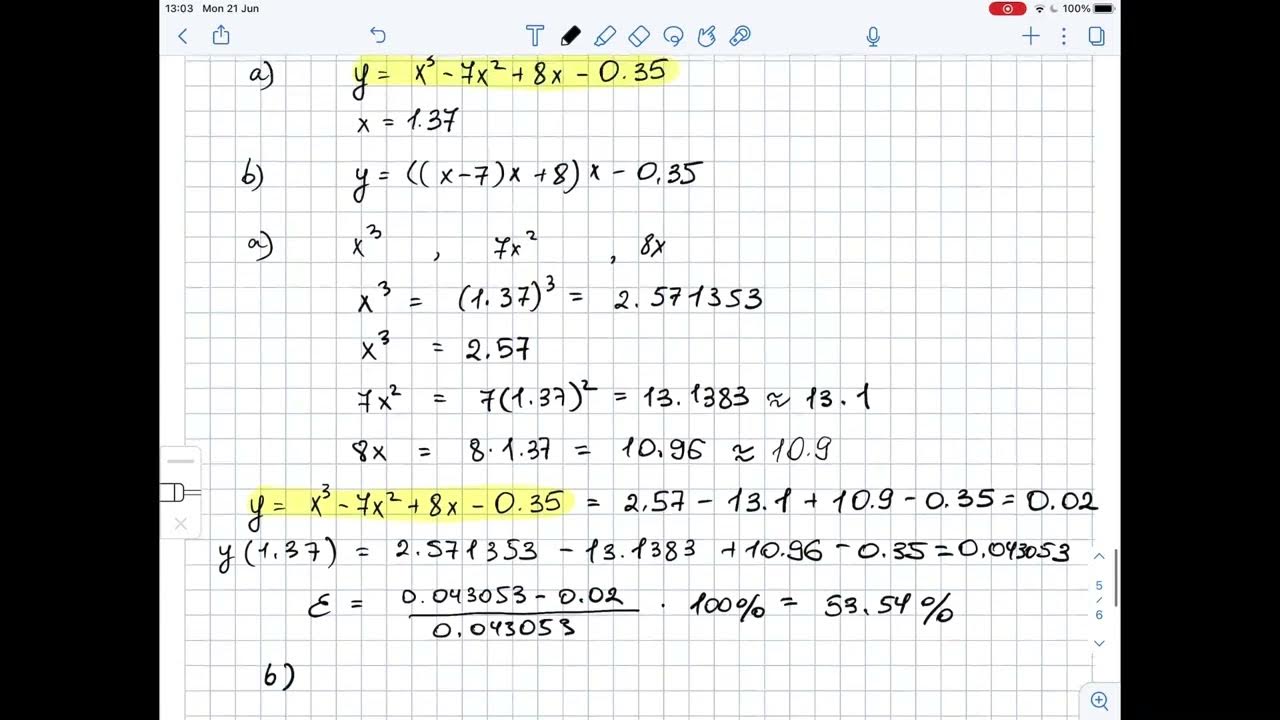 13:03 Mon 21 Jun
100%
T
a) y = x³ - 7x² + 8x - 0.35
x = 1.37
b) y = ((x-7)x + 8)x - 0.35
a) x³ , 7x² , 8x
x³ = (1.37)³ = 2.571353
x³ = 2.57
7x² = 7(1.37)² = 13.1383 ≈ 13.1
8x = 8·1.37 = 10.96 ≈ 10.9
y = x³ - 7x² + 8x - 0.35 = 2.57 - 13.1 + 10.9 - 0.35 = 0.02
y(1.37) = 2.571353 - 13.1383 + 10.96 - 0.35 = 0.043053
ε = (0.043053 - 0.02)/0.043053 · 100% = 53.54%
b)
5
6